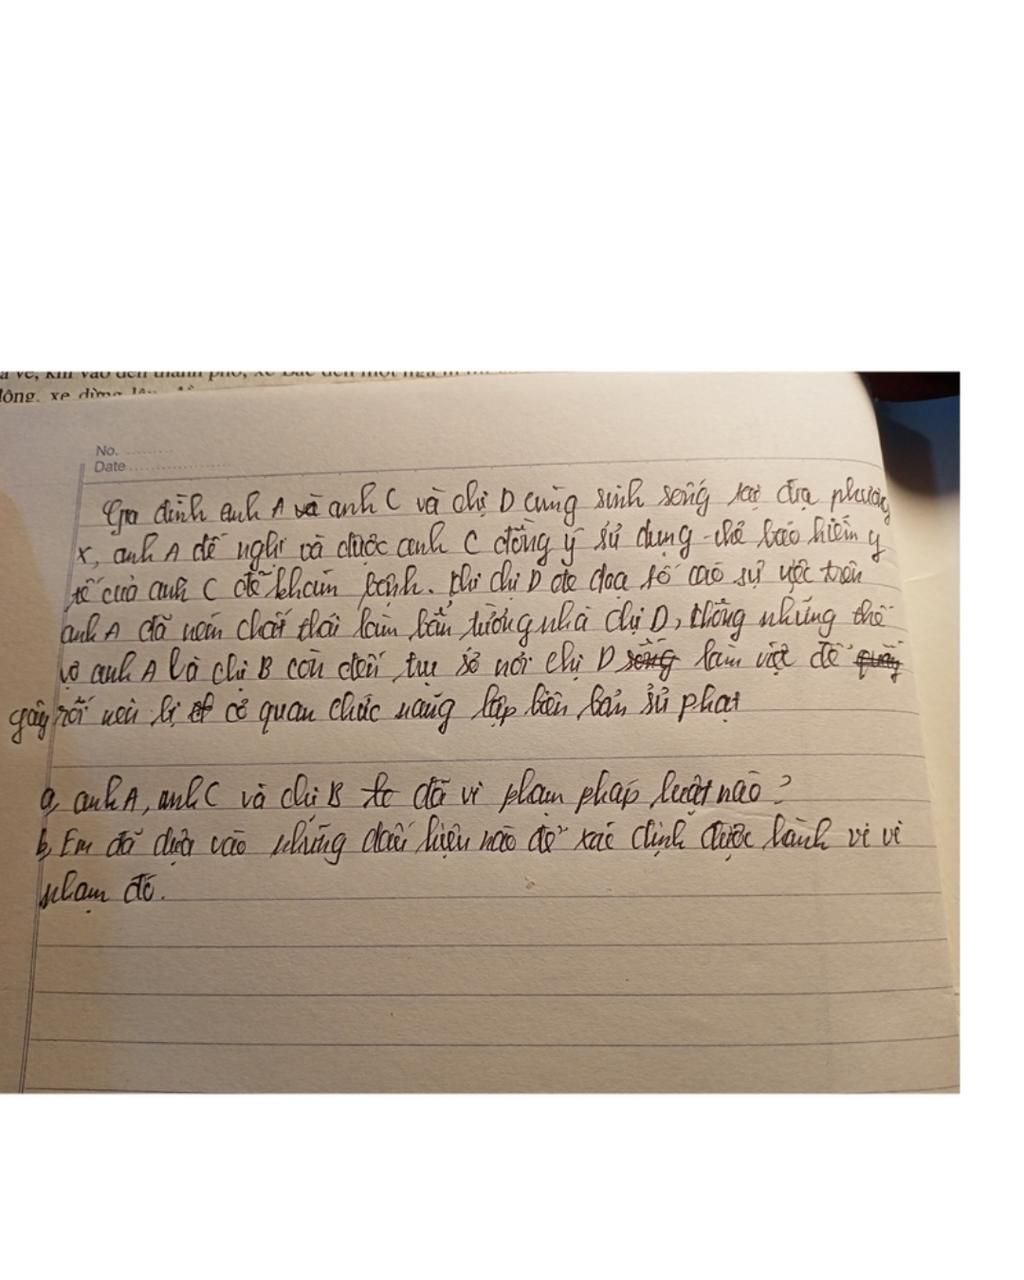 a về, khi vào đến thành phố, xe Bắc đến một ngã
động, xe dừng lâu
No.
Date
Gia đình anh A và anh C và chị D cùng sinh sống tại địa phương
X, anh A đề nghị và được anh C đồng ý sử dụng thẻ bảo hiểm y
tế của anh C để khám bệnh. Khi chị D đe dọa tố cáo sự việc trên
anh A đã ném chất thải làm bẩn tường nhà chị D, không những thế
vợ anh A là chị B còn đến trụ sở nơi chị D sống làm việc để quấy
gây rối nên bị cơ quan chức năng lập biên bản sử phạt
a, anh A, anh C và chị B đã vi phạm pháp luật nào?
b, Em đã dựa vào những dấu hiệu nào để xác định được hành vi vi
phạm đó.